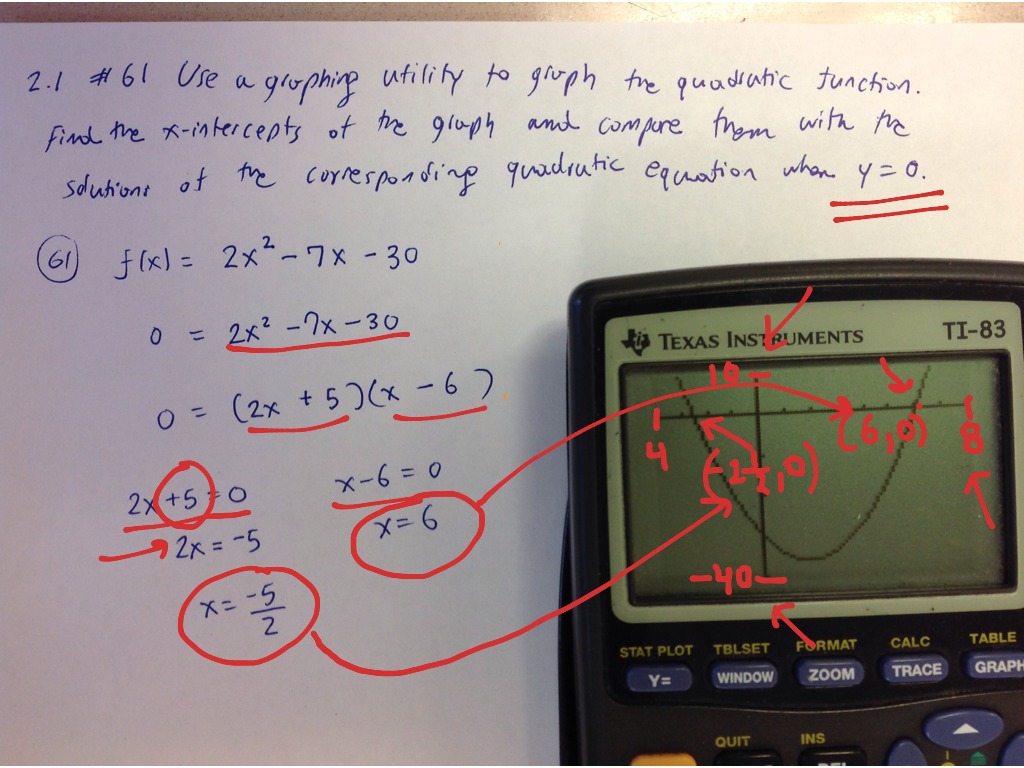 2.1 #61 Use a graphing utility to graph the quadratic function.
Find the x-intercepts of the graph and compare them with the
solutions of the corresponding quadratic equation when y = 0.
61 f(x) = 2x² - 7x - 30
0 = 2x² - 7x - 30
0 = (2x + 5)(x - 6)
2x + 5 = 0
2x = -5
x = -5/2
x - 6 = 0
x = 6
TEXAS INSTRUMENTS TI-83
10
4
8
(6,0)
(-2½,0)
-40
STAT PLOT TBLSET FORMAT CALC TABLE
Y= WINDOW ZOOM TRACE GRAPH
QUIT INS
DEL